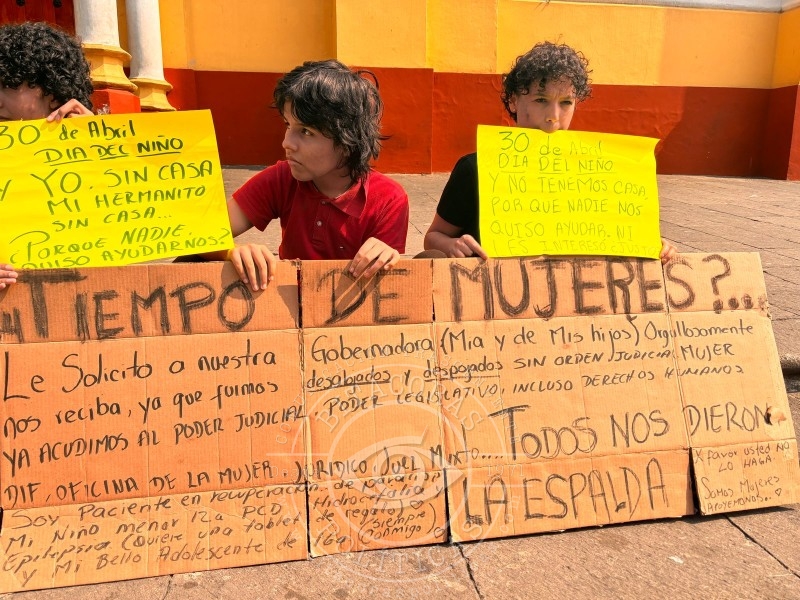 30 de Abril
DIA DEL NIÑO
Y YO, SIN CASA
MI HERMANITO
SIN CASA...
¿PORQUE NADIE
QUISO AYUDARNOS?
30 de Abril
DIA DEL NIÑO
Y NO TENEMOS CASA
PORQUE NADIE NOS
QUISO AYUDAR. NI
LES INTERESÓ
¿TIEMPO DE MUJERES?...
Le Solicito a nuestra Gobernadora (Mia y de Mis hijos) Orgullosamente MUJER
nos reciba, ya que fuimos desalojados y despojados SIN ORDEN JUDICIAL
YA ACUDIMOS AL PODER JUDICIAL, PODER LEGISLATIVO, INCLUSO DERECHOS HUMANOS
DIF, OFICINA DE LA MUJER, JURIDICO, ... TODOS NOS DIERON
LA ESPALDA
Soy Paciente en recuperación de paralisis
Mi Niño menor 12a PCD Hidrocefalia
Epilepsia (Quiere una tablet de regalo)
y Mi Bello Adolescente de 16a (siempre conmigo)
X favor usted NO
LO HAGA.
Somos Mujeres
APOYEMONOS..